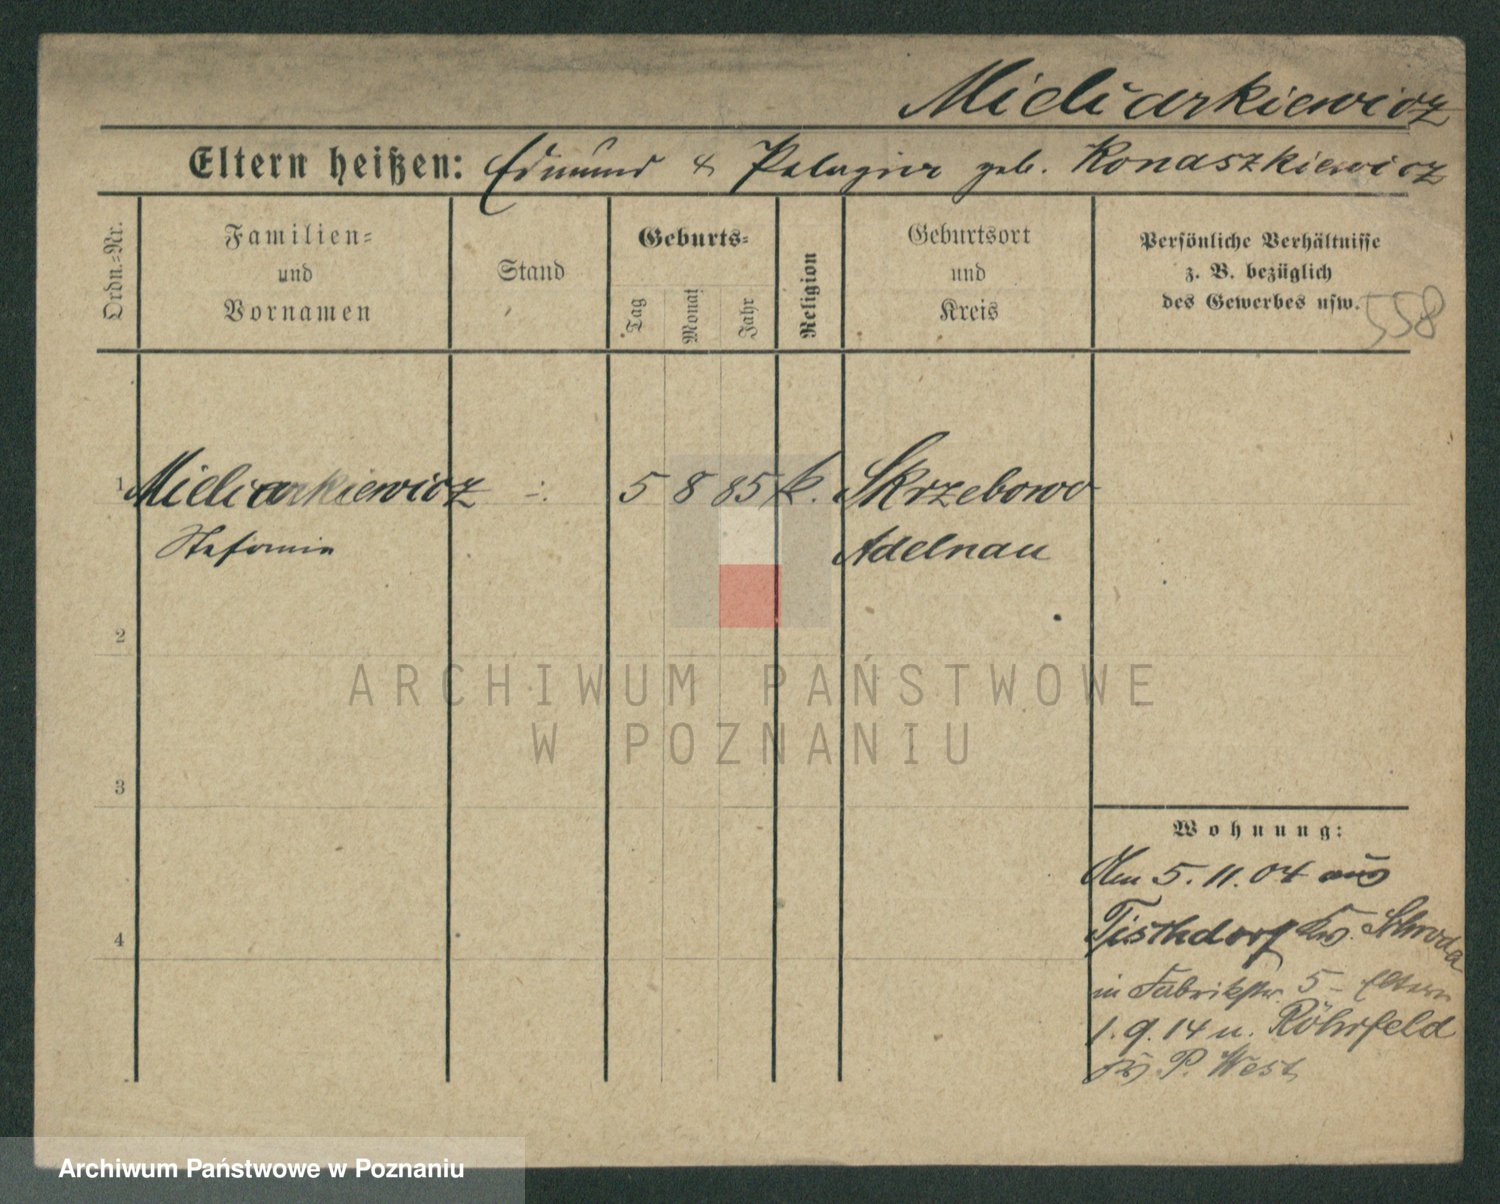 Mieliarkiewicz
Eltern heißen: Edmund & Pelagia geb. Konaszkiewicz
Ordn.=Nr.
Familien=
und
Vornamen
Stand
Geburts=
Tag
Monat
Jahr
Religion
Geburtsort
und
Kreis
Persönliche Verhältnisse
z. B. bezüglich
des Gewerbes usw.
558
1 Mieliarkiewicz -:- 5 8 85 k. Skrzebowo
Stefania Adelnau
2
ARCHIWUM PAŃSTWOWE
W POZNANIU
3
Wohnung:
Am 5. 11. 04 aus
Tischdorf Kr. Schroda
4
in Fabrikstr. 5 - Eltern
1. 9. 14 n. Röhrfeld
P. West
Archiwum Państwowe w Poznaniu